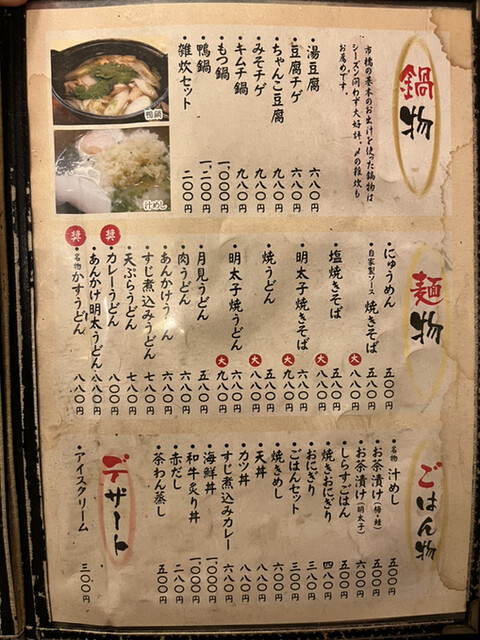 鍋物
市橋の基本のお出汁を使った鍋物は
シーズン問わず大好評。〆の雑炊も
お薦めです。
・湯豆腐 六八〇円
・豆腐チゲ 六八〇円
・ちゃんこ豆腐 九八〇円
・みそチゲ 九八〇円
・キムチ鍋 九八〇円
・もつ鍋 一、〇〇〇円
・鴨鍋 一、二〇〇円
・雑炊セット 二〇〇円
鴨鍋
汁めし
麺物
・にゅうめん 五〇〇円
・自家製ソース 焼きそば 五八〇円
大 八八〇円
・塩焼きそば 五八〇円
大 八八〇円
・明太子焼きそば 六八〇円
大 九八〇円
・焼うどん 五八〇円
大 八八〇円
・明太子焼うどん 六八〇円
大 九八〇円
・月見うどん 五八〇円
・肉うどん 六八〇円
・あんかけうどん 六八〇円
・すじ煮込みうどん 七八〇円
・天ぷらうどん 七八〇円
奨 ・カレーうどん 八〇〇円
・あんかけ明太うどん 八八〇円
奨 ・名物かすうどん 八八〇円
ごはん物
・名物 汁めし 五〇〇円
・お茶漬け(梅・鮭) 五〇〇円
・お茶漬け(明太子) 六〇〇円
・しらすごはん 五〇〇円
・焼きおにぎり 四八〇円
・おにぎり 三八〇円
・ごはんセット 三〇〇円
・焼きめし 八八〇円
・天丼 八八〇円
・カツ丼 八八〇円
・すじ煮込みカレー 六八〇円
・海鮮丼 一〇〇〇円
・和牛炙り丼 一〇〇〇円
・赤だし 二八〇円
・茶わん蒸し 五〇〇円
デザート
・アイスクリーム 三〇〇円